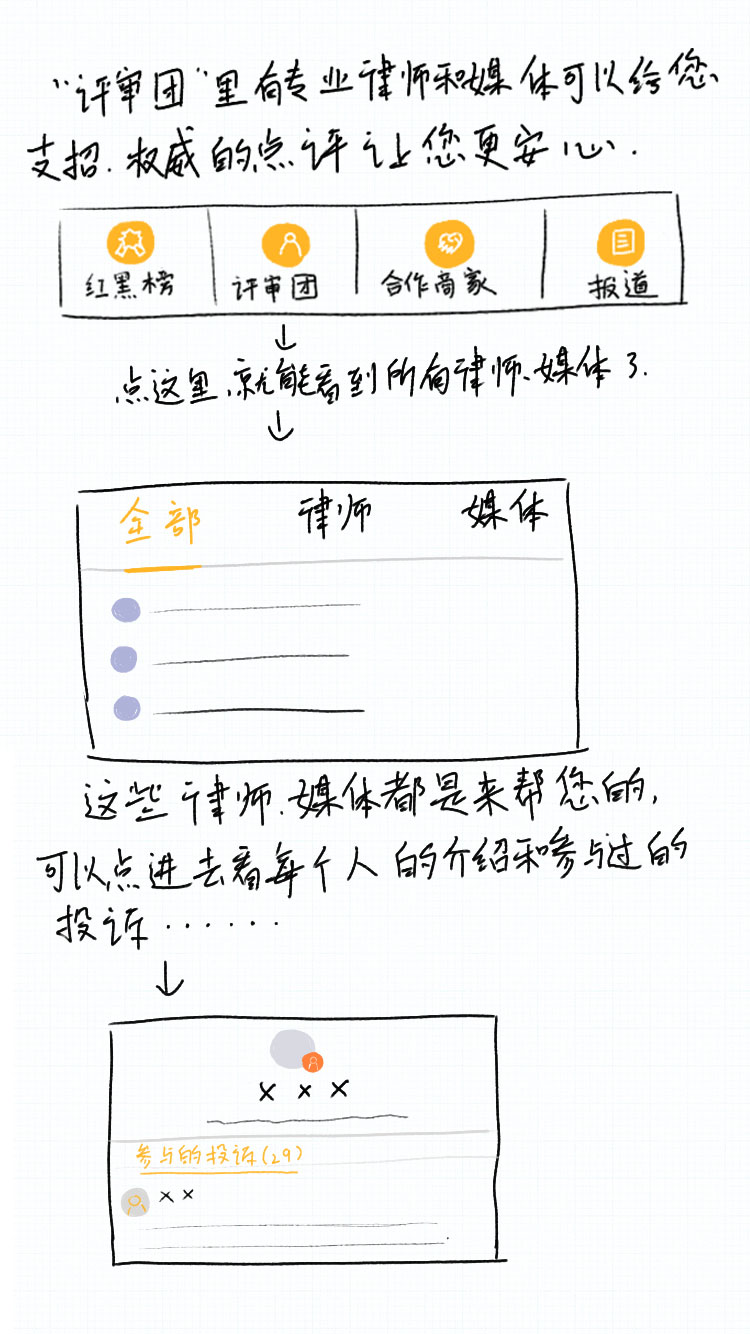 “评审团”里有专业律师和媒体可以给您
支招.权威的点评让您更安心.
红黑榜 评审团 合作商家 报道
点这里,就能看到所有律师、媒体了.
全部 律师 媒体
这些律师、媒体都是来帮您的,
可以点进去看每个人的介绍和参与过的
投诉······
×××
参与的投诉(29)
××